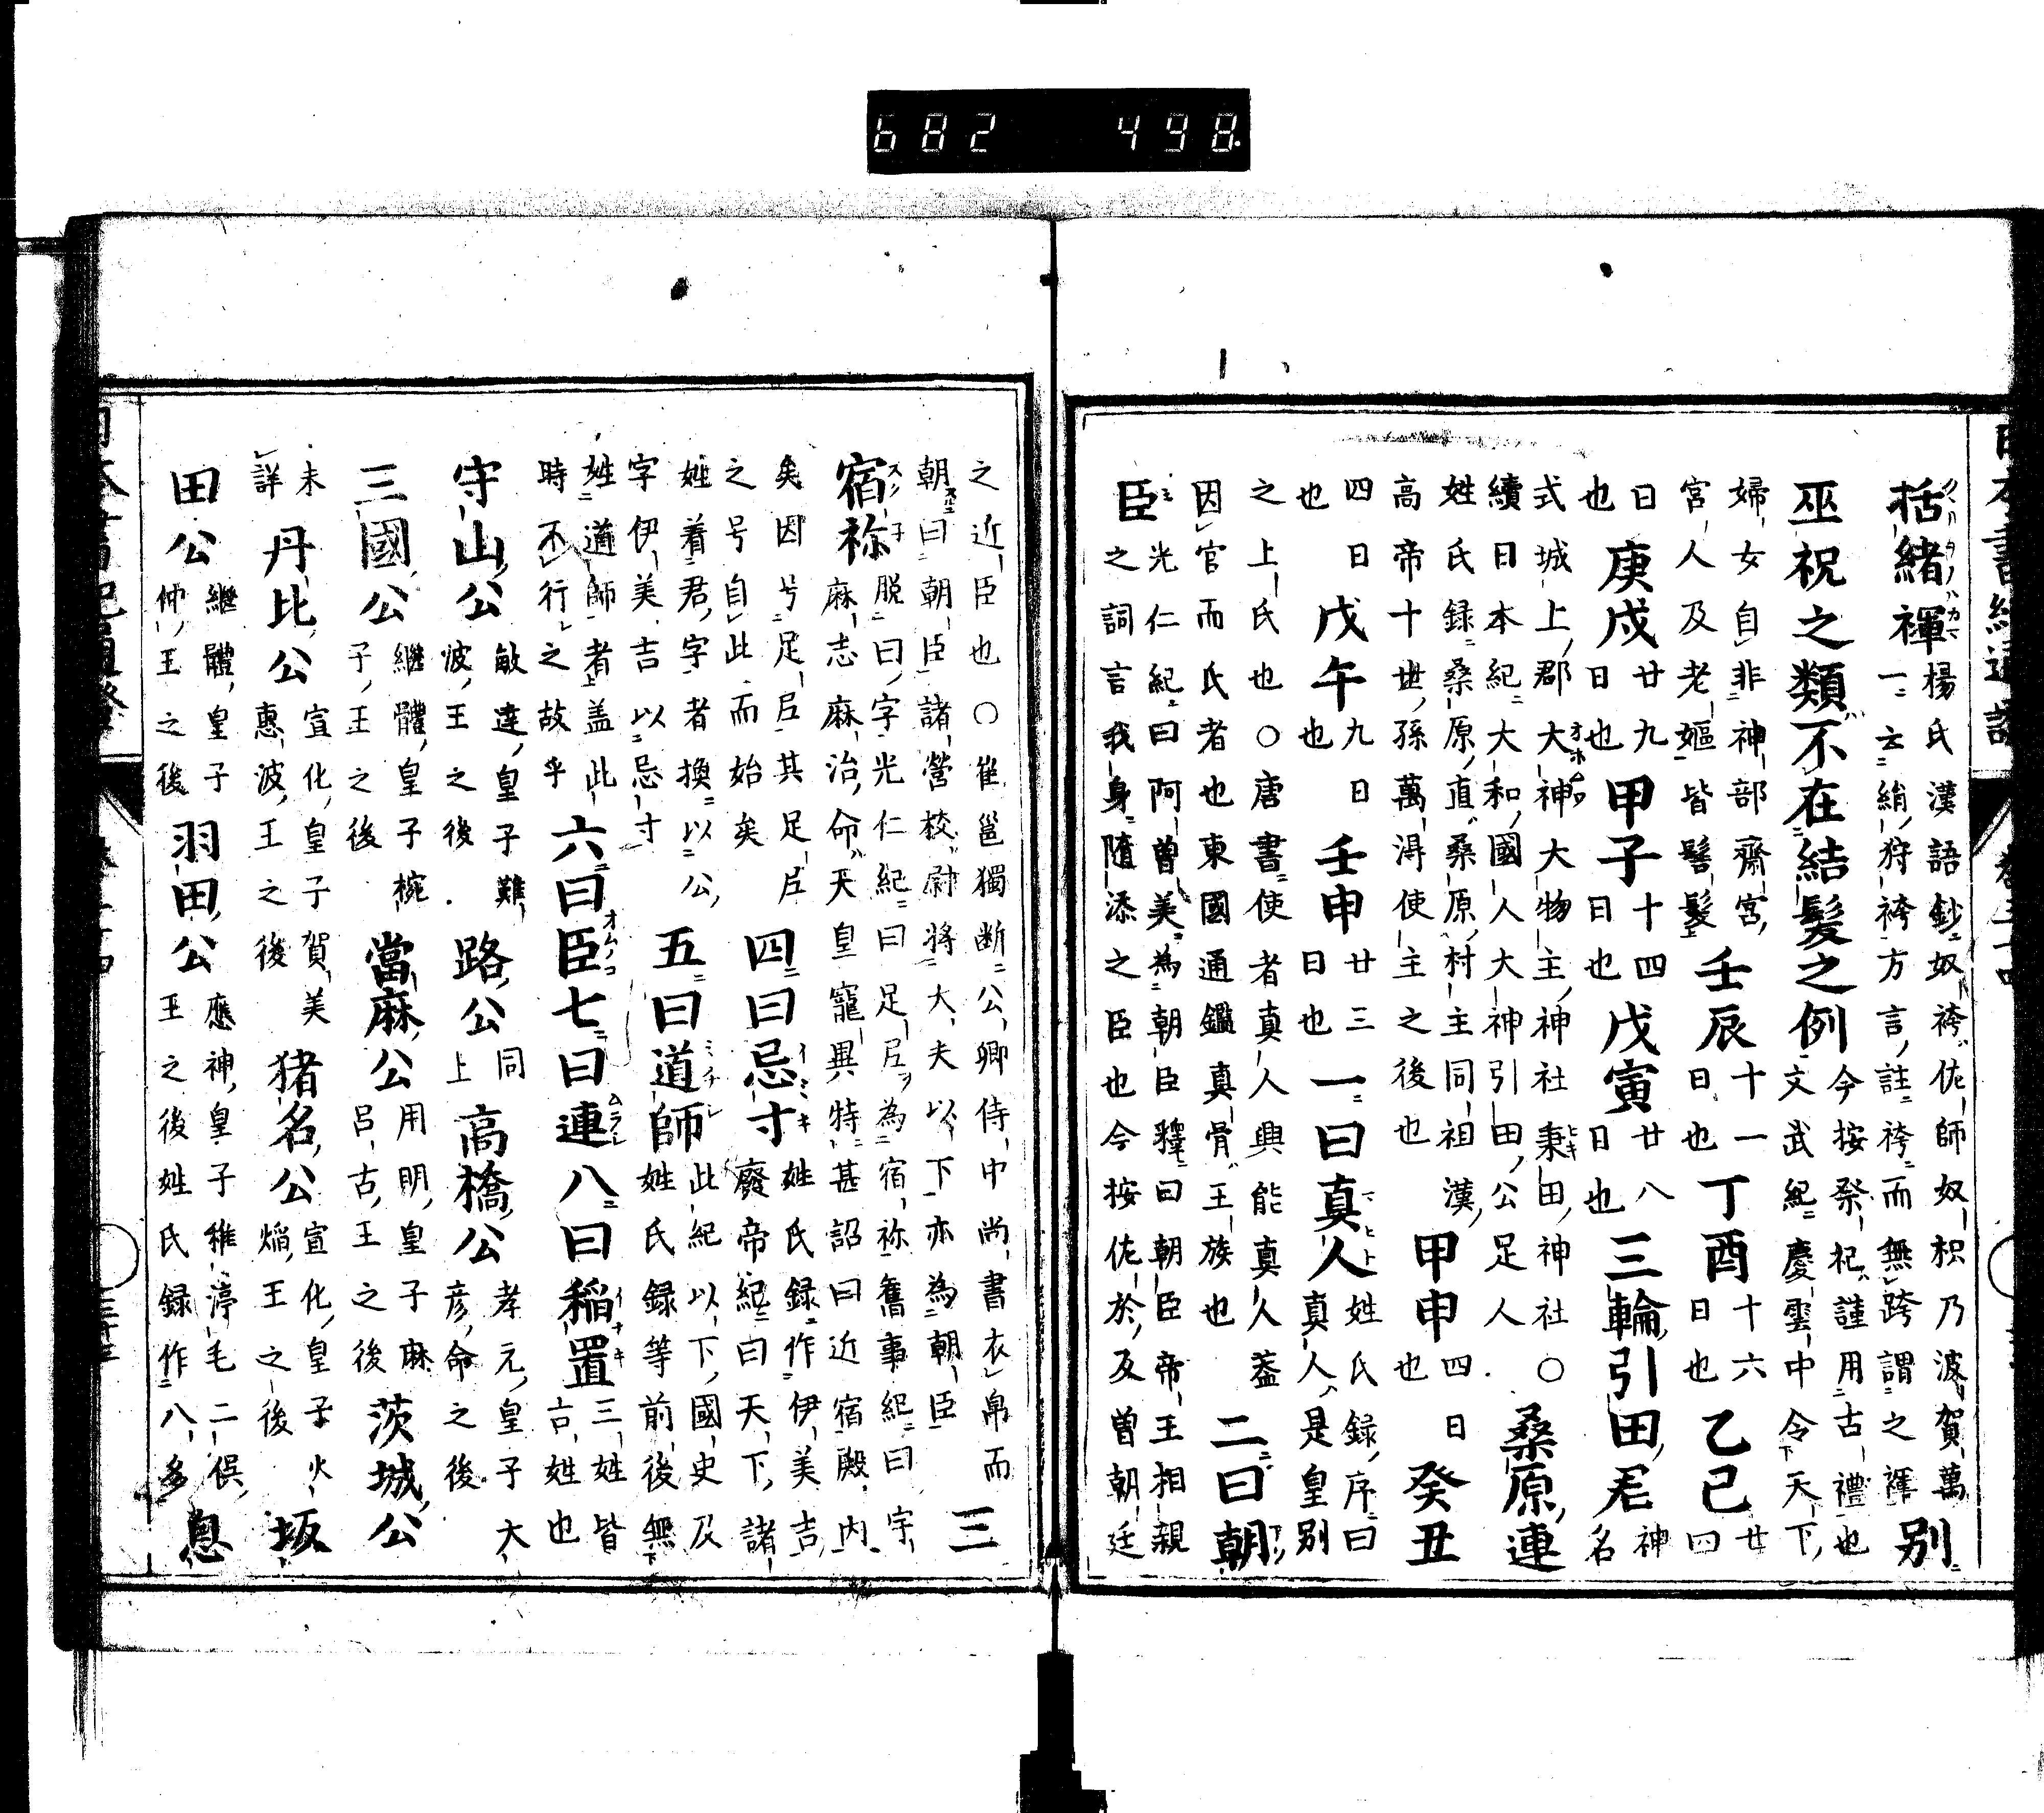 682 498
括緒褌 楊氏漢語鈔奴袴佐師奴枳乃波賀萬
一云絹狩袴方言註袴而無跨謂之褌 別
巫祝之類不在結髮之例 今按祭祀謹用古禮也
文武紀慶雲中令天下
婦女自非神部齋宮
宮人及老嫗皆髻髮 壬辰 十一日也 丁酉 十六日也 乙巳 廿四
日也 庚戌 廿九日也 甲子 十四日也 戊寅 廿八日也 三輪引田君 神名
式城上郡大神大物主神社秉田神社〇
續日本紀大和國人大神引田公足人 桑原連
姓氏録桑原直桑原村主同祖漢
高帝十世孫萬得使主之後也 甲申 四日也 癸丑
四日也 戊午 九日也 壬申 廿三日也 一曰真人 姓氏録序曰真人是皇別
之上氏也〇唐書使者真人興能真人蓋
因官而氏者也東國通鑑真骨王族也 二曰朝
臣 光仁紀曰阿曾美為朝臣釋曰朝臣帝王相親
之詞言我身隨添之臣也今按佐於及曾朝廷
日本書紀通證
之近臣也〇崔邕獨断公卿侍中尚書衣帛而
朝曰朝臣諸營校尉將大夫以下亦為朝臣 三
宿祢 脱曰字光仁紀曰足尼為宿祢舊事紀曰宇
麻志麻治命天皇寵異特甚詔曰近宿殿内
矣因号足尼其足尼
之号自此而始矣 四曰忌寸 姓氏録作伊美吉
廢帝紀曰天下諸
姓着君字者換以公
字伊美吉以忌寸 五曰道師 此紀以下國史及
姓氏録等前後無下
姓道師者上盖此
時不行之故乎 六曰臣七曰連八曰稲置 三姓皆
古姓也
守山公 敏達皇子難
波王之後 路公 同上 高橋公 孝元皇子大
彦命之後
三國公 継體皇子椀
子王之後 當麻公 用明皇子麻
呂古王之後 茨城公
未詳 丹比公 宣化皇子賀美
惠波王之後 猪名公 宣化皇子火
焔王之後 坂
田公 継體皇子
仲王之後 羽田公 應神皇子稚渟毛二俣
王之後姓氏録作八多 息